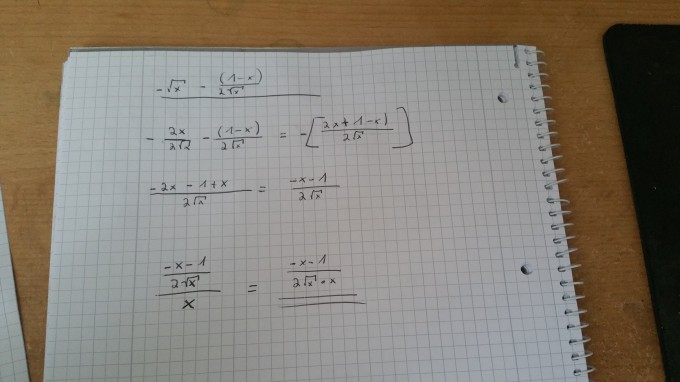 -√x - (1-x)/(2√x)
- 2x/(2√x) - (1-x)/(2√x) = -[(2x+1-x)/(2√x)]
(-2x - 1 + x)/(2√x) = (-x-1)/(2√x)
((-x-1)/(2√x))/x = (-x-1)/(2√x · x)